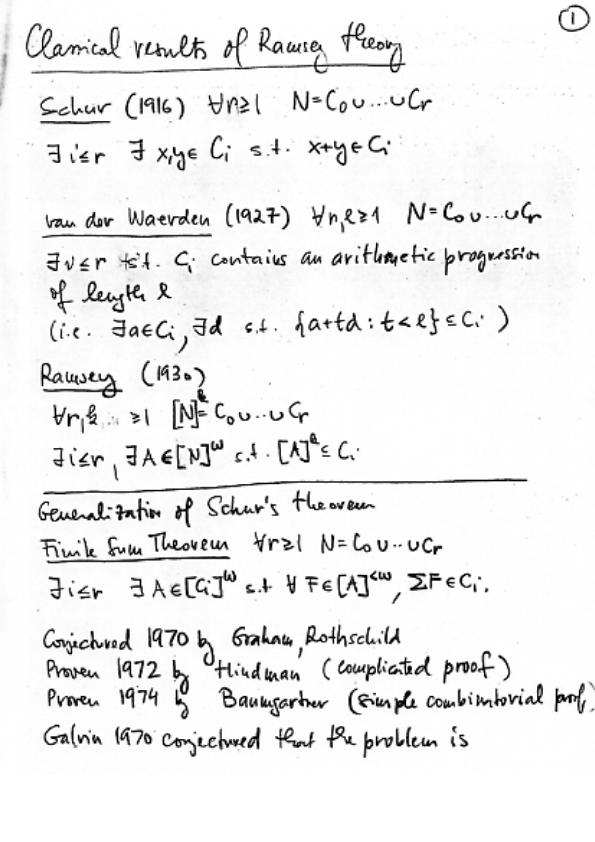 1
Classical results of Ramsey theory
Schur (1916) ∀r≥1 N=C₀∪...∪Cr
∃i≤r ∃ x,y∈ Ci s.t. x+y∈Ci
van der Waerden (1927) ∀r,ℓ≥1 N=C₀∪...∪Cr
∃i≤r s.t. Ci contains an arithmetic progression
of length ℓ
(i.e. ∃a∈Ci, ∃d s.t. {a+td : t<ℓ}⊆Ci )
Ramsey (1930)
∀r,k ≥1 [N]ᵏ=C₀∪..∪Cr
∃i≤r, ∃A∈[N]^ω s.t. [A]ᵏ⊆Ci
Generalization of Schur's theorem
Finite Sum Theorem ∀r≥1 N=C₀∪..∪Cr
∃i≤r ∃A∈[Ci]^ω s.t ∀F∈[A]^<ω, ΣF∈Ci.
Conjectured 1970 by Graham, Rothschild
Proven 1972 by Hindman (complicated proof)
Proven 1974 by Baumgartner (simple combintorial proof)
Galvin 1970 conjectured that the problem is